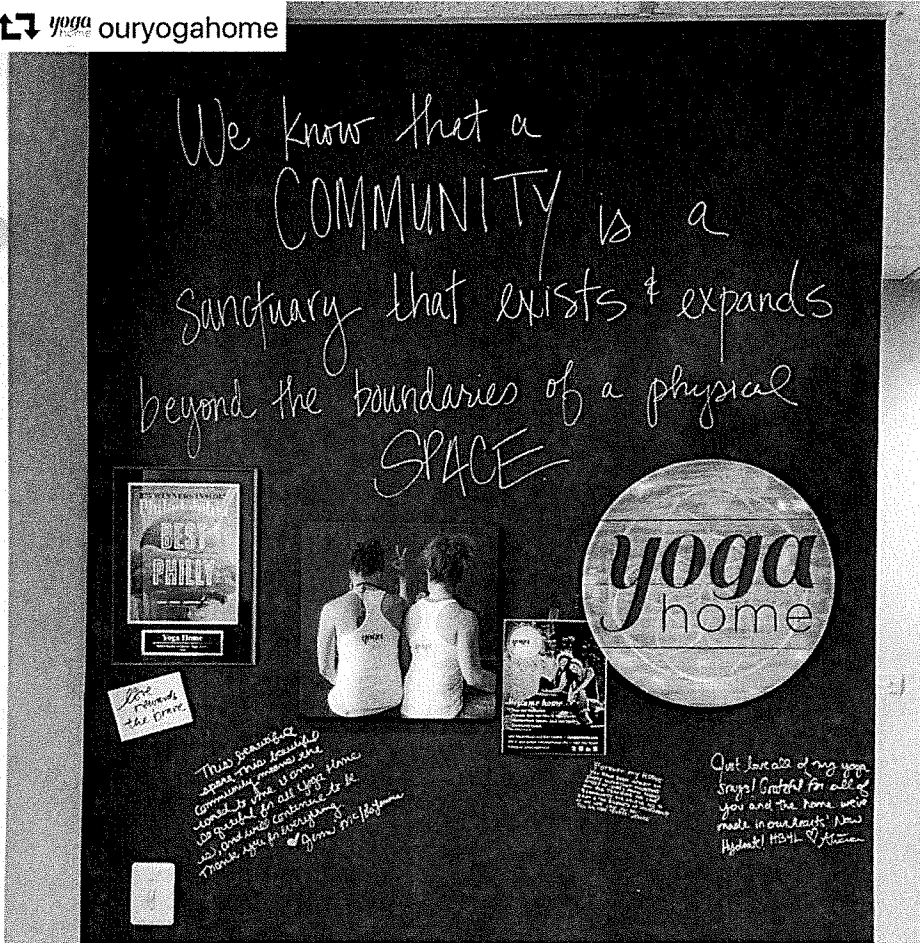 yoga
home ouryogahome
We know that a
COMMUNITY is a
sanctuary that exists & expands
beyond the boundaries of a physical
SPACE.
BEST
PHILLY
Yoga Home
yoga
home
yoga
home
love
rewards
the brave
This beautiful
space this beautiful
community means the
world to me. I am
so grateful for all Yoga Home
is, and will continue to be
Thank you for everything
Just love all of my yoga
Grateful for all of
you and the home we've
made in our hearts! Now
Hydrate! HB4L